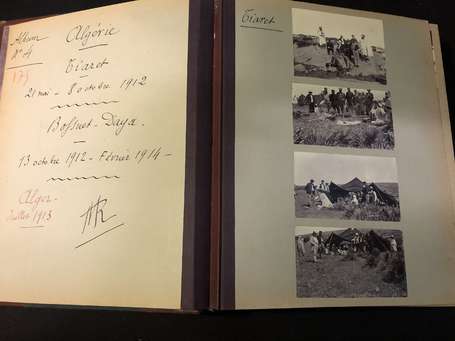 Album
N° 4
Algérie
175
Tiaret
21 mai - 8 octobre 1912
Bossuet - Daya.
13 octobre 1912 - Février 1914 -
Alger -
Juillet 1913
AR
Tiaret